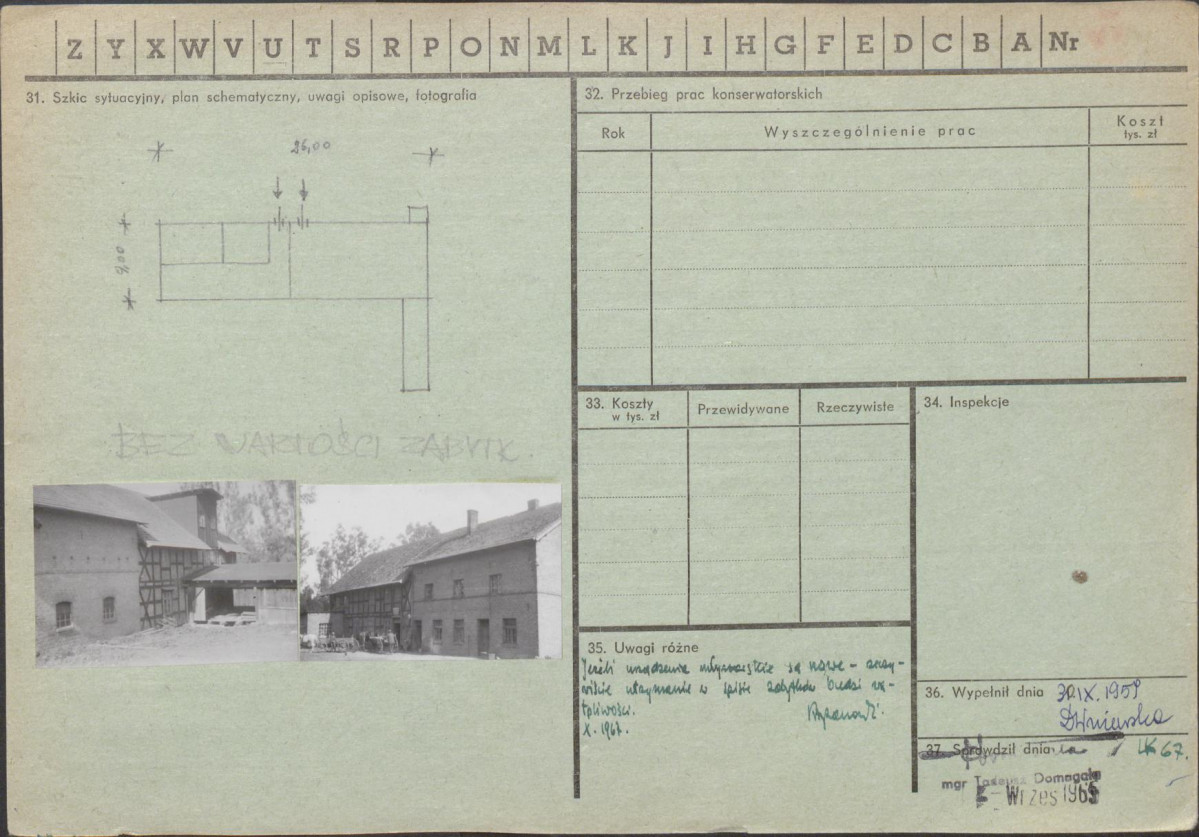 Z Y X W V U T S R P O N M L K J I H G F E D C B A Nr
31. Szkic sytuacyjny, plan schematyczny, uwagi opisowe, fotografia
26,00
9,00
BEZ WARTOŚCI ZABYTK.
32. Przebieg prac konserwatorskich
Rok
Wyszczególnienie prac
Koszt
tys. zł
33. Koszty
w tys. zł
Przewidywane
Rzeczywiste
34. Inspekcje
35. Uwagi różne
Jeżeli urządzenia młynarskie są nowe –
utrzymanie w spisie zabytków budzi wą-
tpliwości.
X. 1967.
36. Wypełnił dnia 30.IX.1959
37. Sprawdził dnia
67.
mgr Tadeusz Domagała
Wrzes 1965